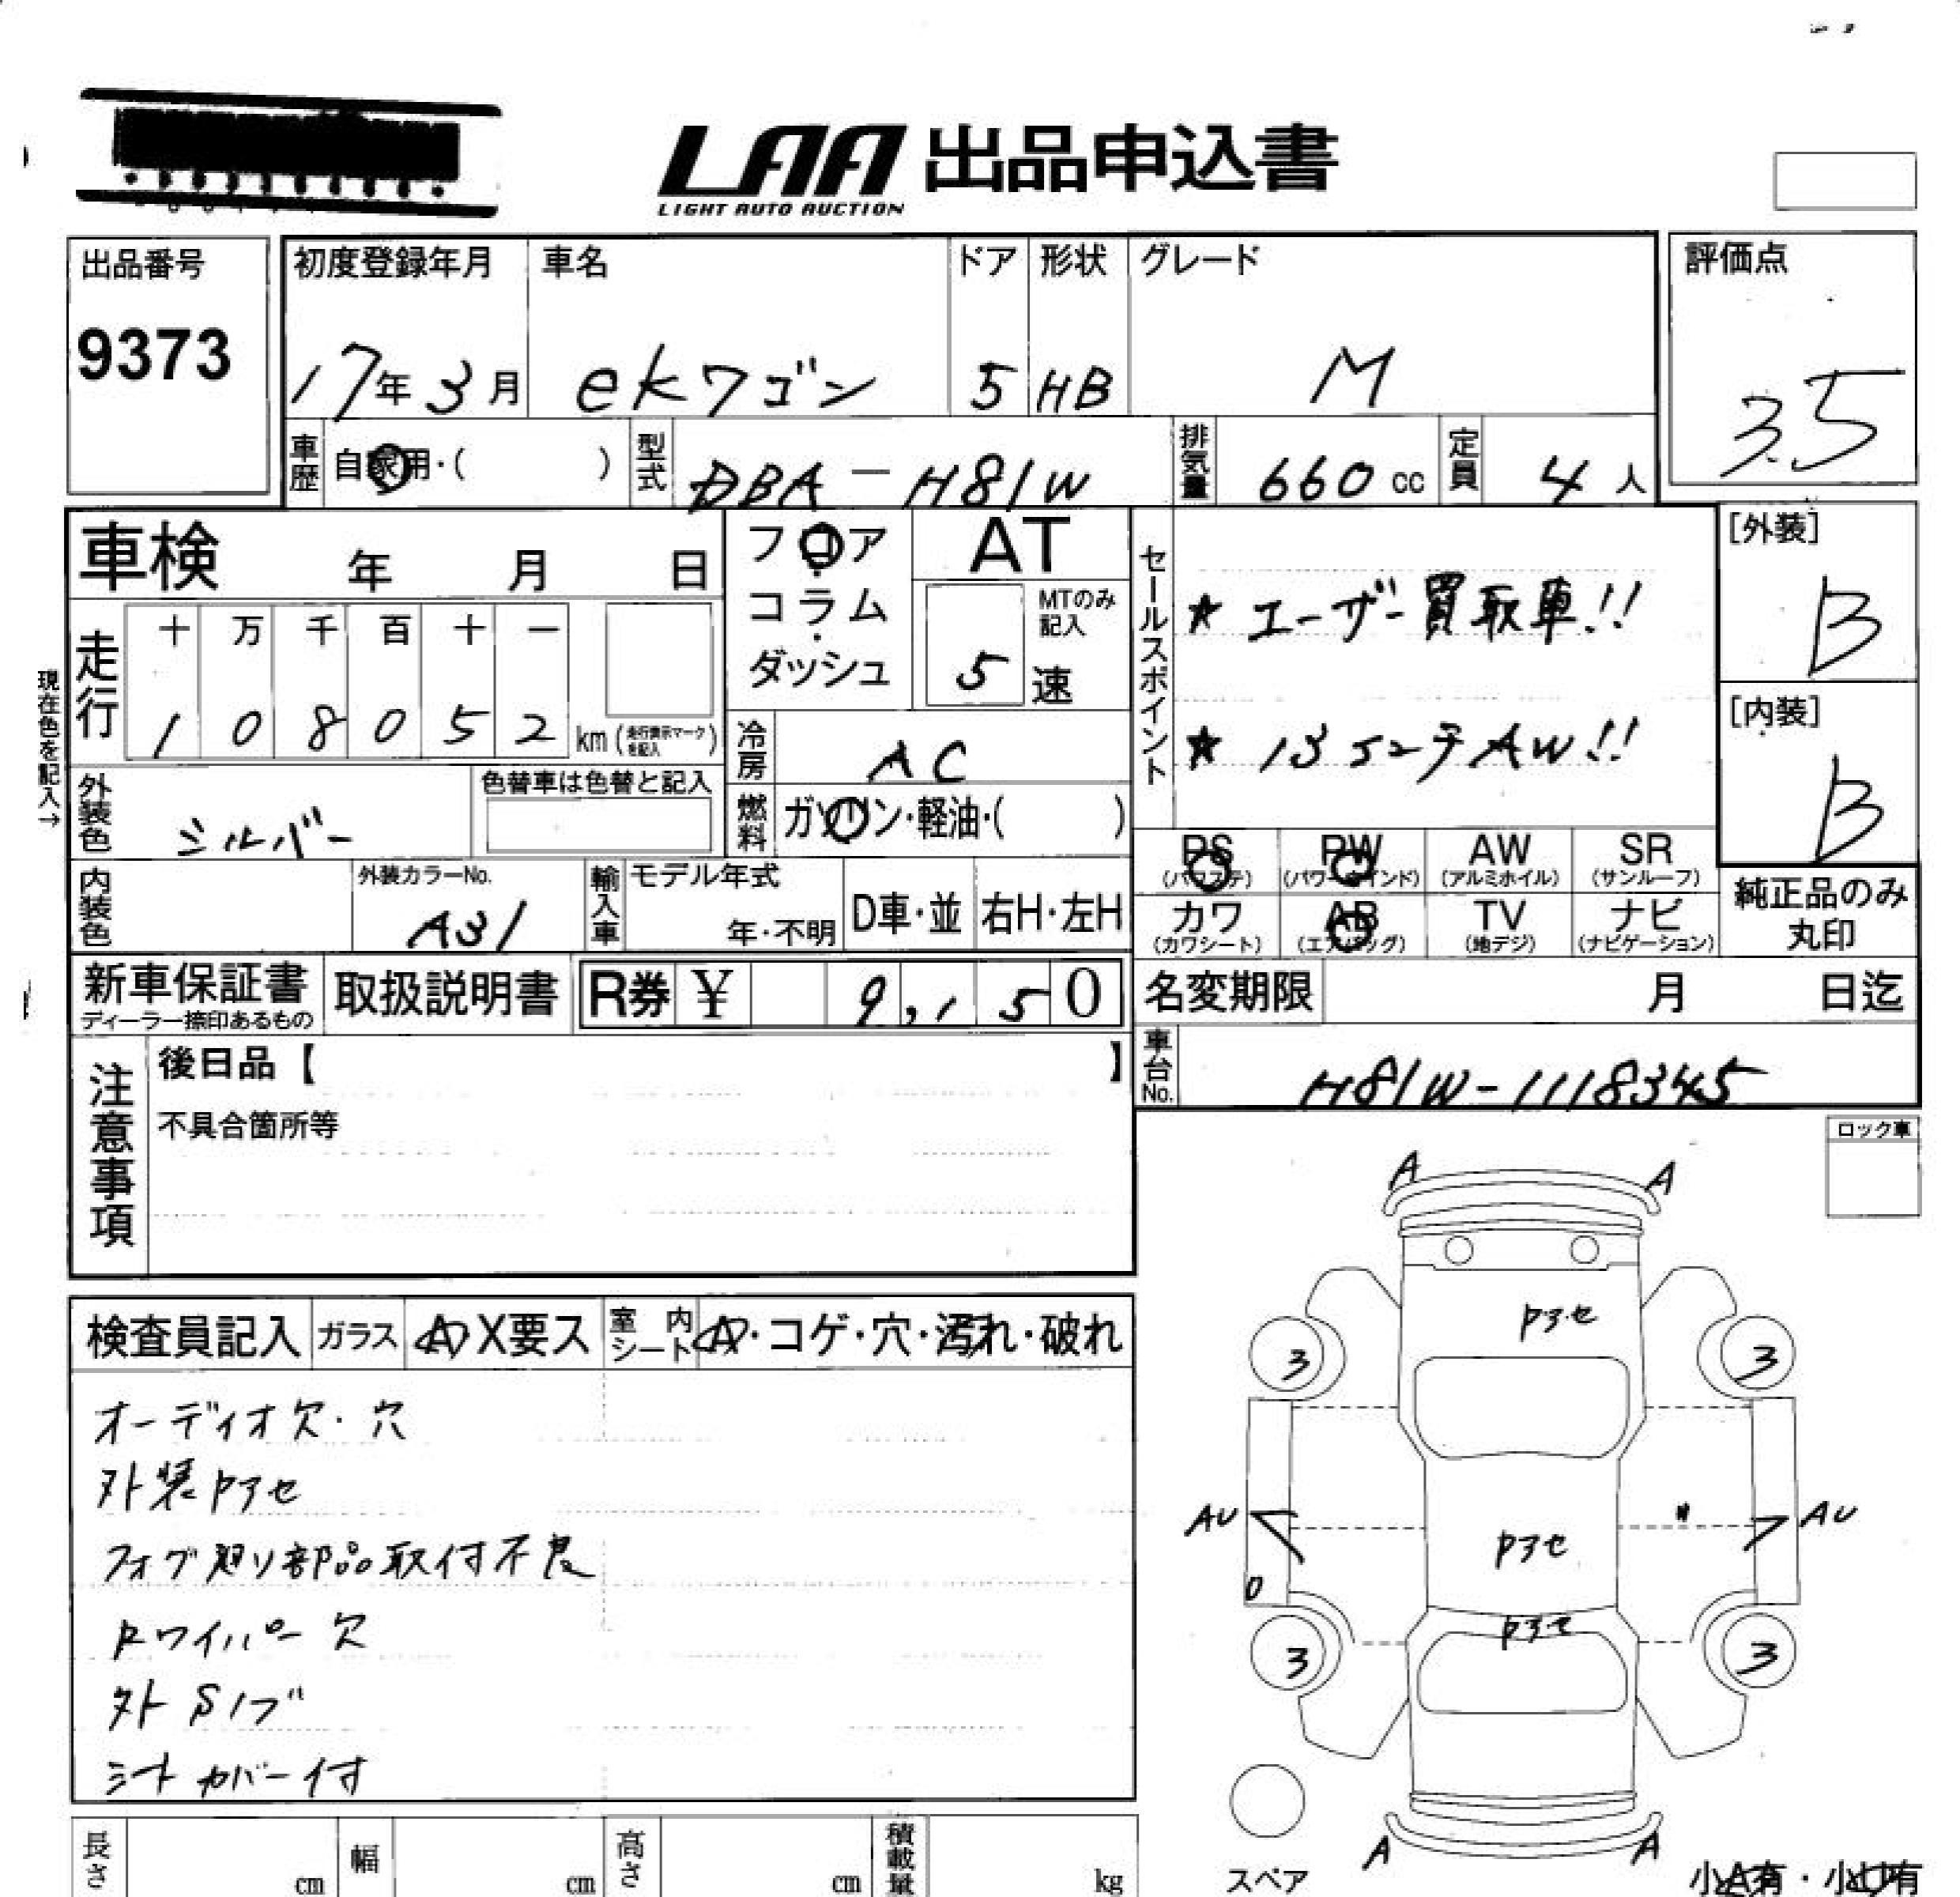 LAA 出品申込書
LIGHT AUTO AUCTION
出品番号
9373
初度登録年月
17年3月
車名
ekワゴン
ドア
5
形状
HB
グレード
M
評価点
3.5
車歴
自家用・( )
型式
DBA-H81W
排気量
660 cc
定員
4人
車検 年 月 日
フロア・
コラム・
ダッシュ
AT
MTのみ
記入
5速
セールスポイント
★ユーザー買取車!!
★13インチAW!!
[外装]
B
[内装]
B
現在色を記入→
走行
十 万 千 百 十 一
1 0 8 0 5 2 km(走行表示マークを記入)
冷房
AC
外装色
シルバー
色替車は色替と記入
燃料
ガソリン・軽油・( )
PS
(パワステ)
PW
(パワーウインド)
AW
(アルミホイル)
SR
(サンルーフ)
カワ
(カワシート)
AB
(エアバッグ)
TV
(地デジ)
ナビ
(ナビゲーション)
純正品のみ
丸印
内装色
外装カラーNo.
A31
輸入車
モデル年式
年・不明
D車・並
右H・左H
新車保証書
ディーラー捺印あるもの
取扱説明書
R券 ¥ 9,150
名変期限 月 日迄
車台No.
H81W-1118345
注意事項
後日品【 】
不具合箇所等
ロック車
検査員記入
ガラス
A X要ス
室内シート
A・コゲ・穴・汚れ・破れ
オーディオ欠・穴
外装アセ
フォグ廻り部品取付不良
Rワイパー欠
外Sイブ
シートカバー付
A A
アセ
3 3
AU アセ 〃 AU
アセ
3 3
スペア
A A
小A有・小U有
長さ cm
幅 cm
高さ cm
積載量 kg